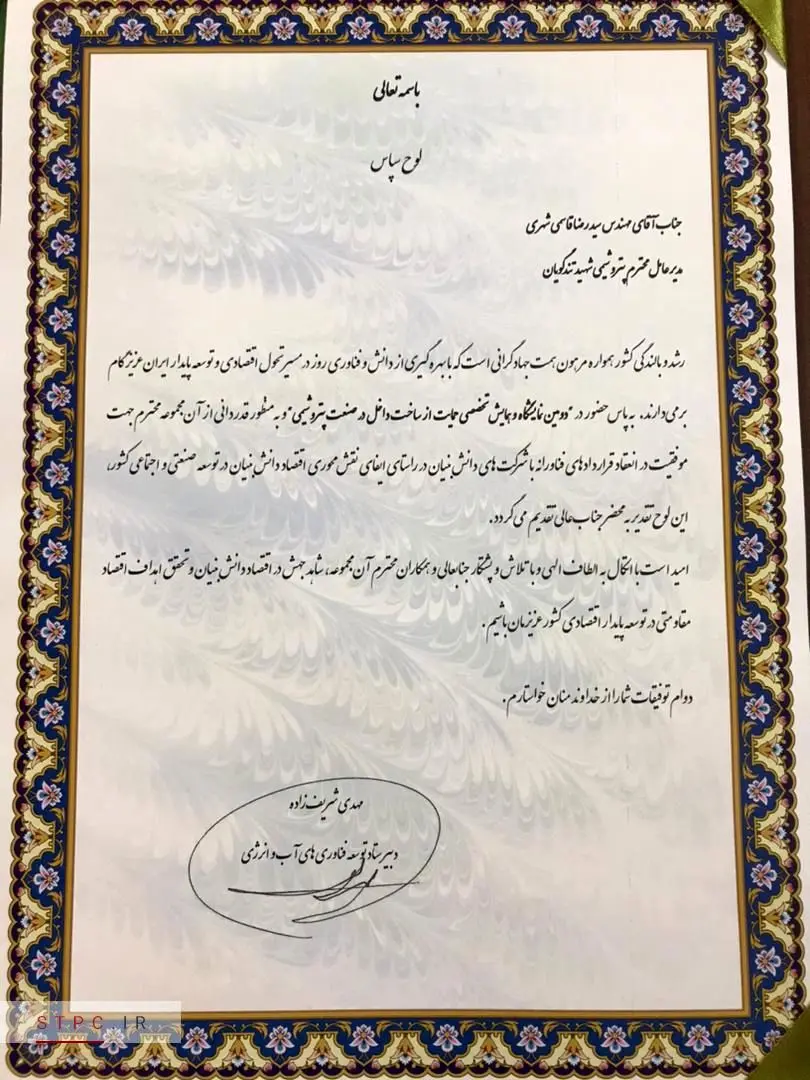 باسمه تعالی
لوح سپاس
جناب آقای مهندس سید رضا قاسمی شهری
مدیر عامل محترم پتروشیمی شهید تندگویان
رشد و بالندگی کشور همواره مرهون همت جهادگرانی است که با بهره گیری از دانش و فناوری روز در مسیر تحول اقتصادی و توسعه پایدار ایران عزیز گام
برمی دارند. به پاس حضور در "دومین نمایشگاه و همایش تخصصی حمایت از ساخت داخل در صنعت پتروشیمی" و به منظور قدردانی از آن مجموعه محترم جهت
موفقیت در انعقاد قراردادهای فناورانه با شرکت های دانش بنیان در راستای ایفای نقش محوری اقتصاد دانش بنیان در توسعه صنعتی و اجتماعی کشور،
این لوح تقدیر به محضر جناب عالی تقدیم می گردد.
امید است با اتکال به الطاف الهی و با تلاش و پشتکار جنابعالی و همکاران محترم آن مجموعه، شاهد جهش در اقتصاد دانش بنیان و تحقق اهداف اقتصاد
مقاومتی در توسعه پایدار اقتصادی کشور عزیزمان باشیم.
دوام توفیقات شما را از خداوند منان خواستارم.
مهدی شریف زاده
دبیر ستاد توسعه فناوری های آب و انرژی
STPC.IR